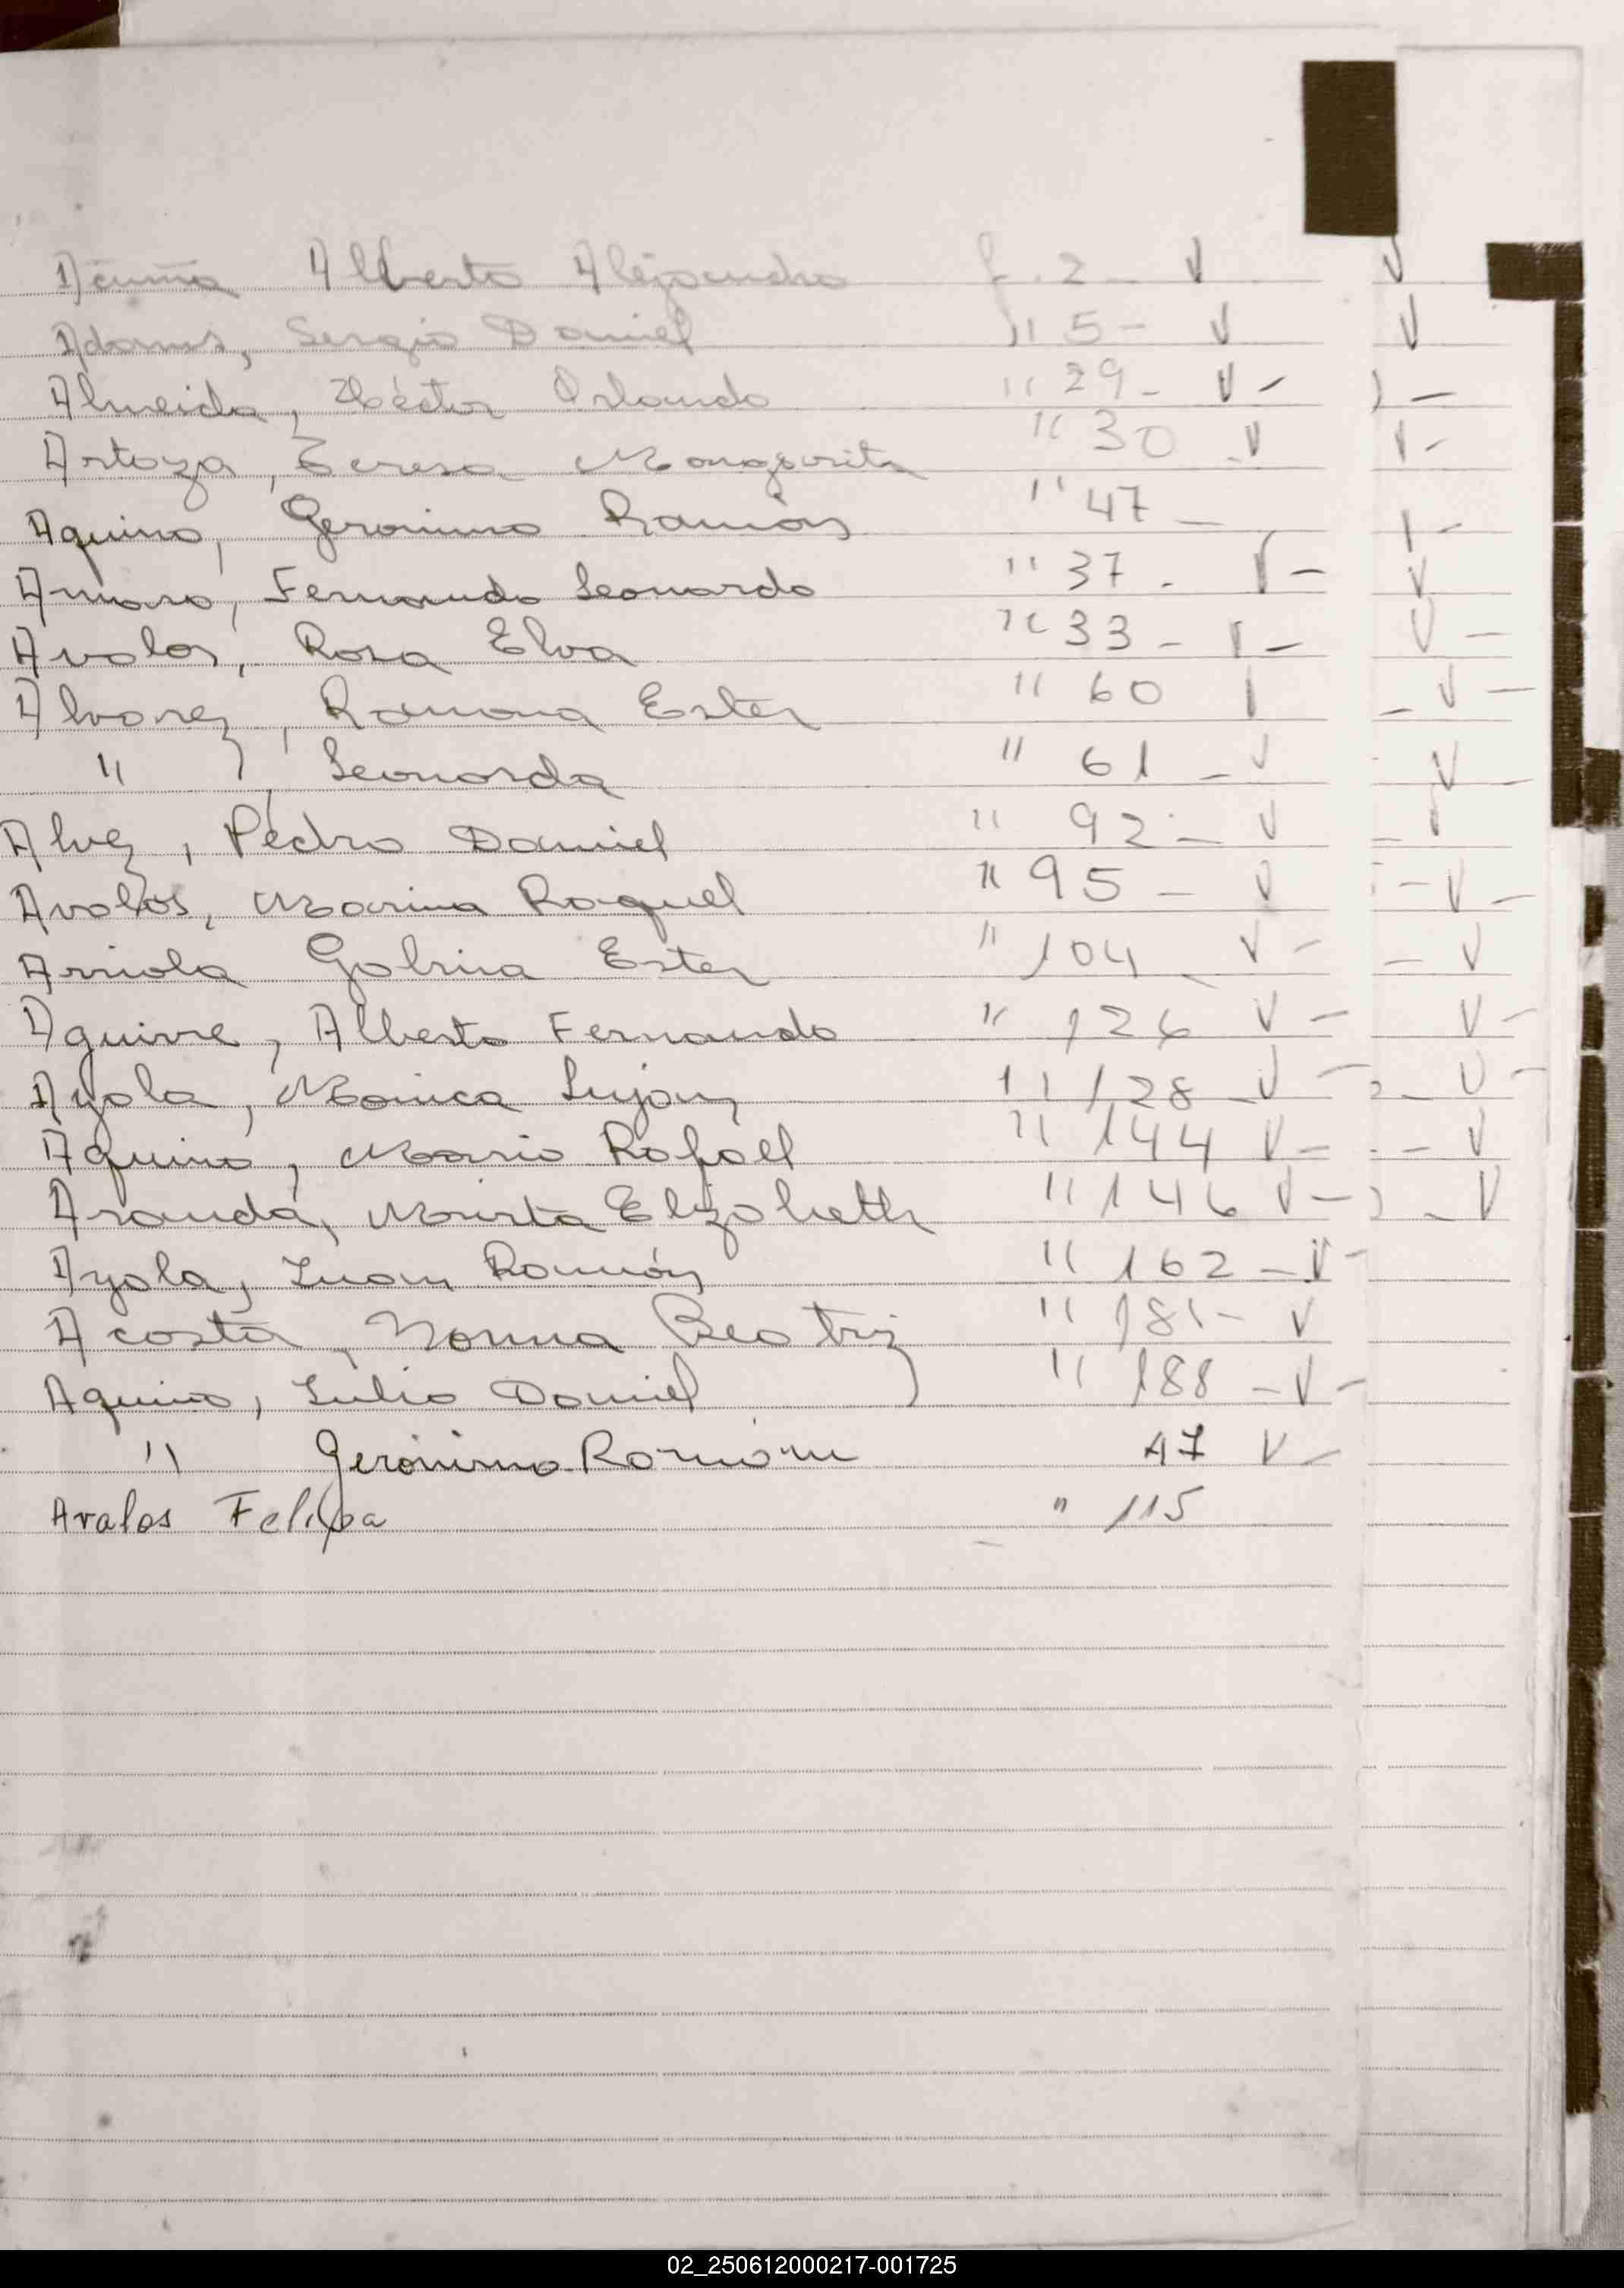 Acuña Alberto Alejandro f. 2 - V V
Adams, Sergio Daniel " 5 - V V
Almeida, Héctor Orlando " 29 - V - -
Artoza, Teresa Mongorita " 30 - V V -
Aquino, Geronimo Ramón " 47 - -
Amaro, Fernando Leonardo " 37 - V - V
Avalos, Rosa Elva " 33 - V - V -
Alvarez, Ramona Ester " 60 - V -
" , Leonarda " 61 - V V -
Alvez, Pedro Daniel " 92 - V - V
Avalos, Marina Raquel " 95 - V - V -
Arriola Gabrira Ester " 104 - V - - V
Aguirre, Alberto Fernando " 126 V - V -
Ayala, Monica Lujan " 128 - V - - V -
Aquino, Mario Rafael " 144 V - - V
Aranda, Mirta Elizabeth " 146 V - - V
Ayala, Juan Ramón " 162 - V -
Acosta, Norma Beatriz " 181 - V
Aquino, Julio Daniel " 188 - V -
" Gerónimo Ramón 47 V -
Avalos Felipa " 115
02_250612000217-001725